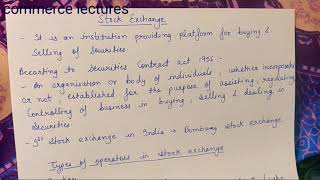 commerce lectures
Stock Exchange
- It is an institution providing platform for buying &
Selling of Securities.
According to Securities Contract act 1956 -
- An organisation or body of individuals, whether incorporated
or not, established for the purpose of assisting, regulating
Controlling of business in buying, selling & dealing in
Securities.
- 1st Stock exchange in India → Bombay stock exchange
Types of operators in stock exchange